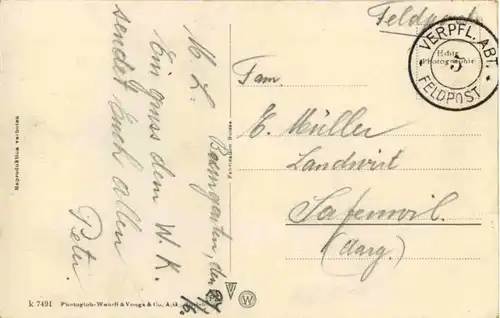 Feldpost
VERPFL. ABT.
5
FELDPOST
Echte
Photographie
Fam.
E. Müller
Landwirt
Safenwil.
(Aarg.)
M. L. Baumgarten, den
Ein gruss dem W. K.
sendet Euch allen
Peter.
Reproduktion verboten
k 7491 Photoglob-Wehrli & Vouga & Co., A.G.
W